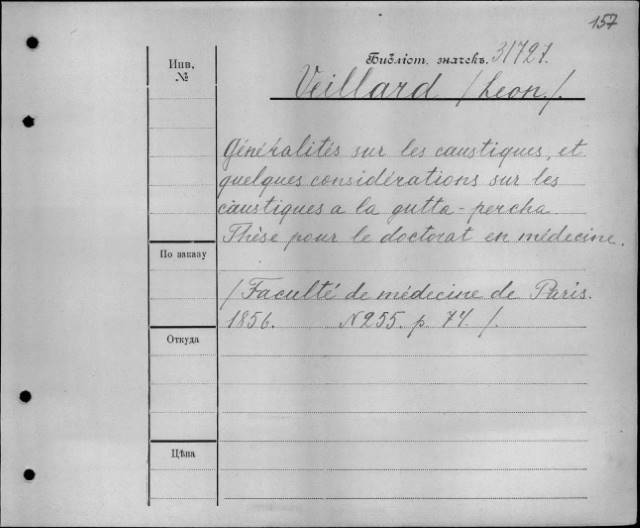 157
Инв.
№
Библіот. значекъ. 31721.
Veillard /Leon/.
Généralités sur les caustiques, et
quelques considérations sur les
caustiques a la gutta-percha
Thèse pour le doctorat en médecine.
По заказу
/Faculté de médecine de Paris.
1856. N255. p. 74. /.
Откуда
Цѣна